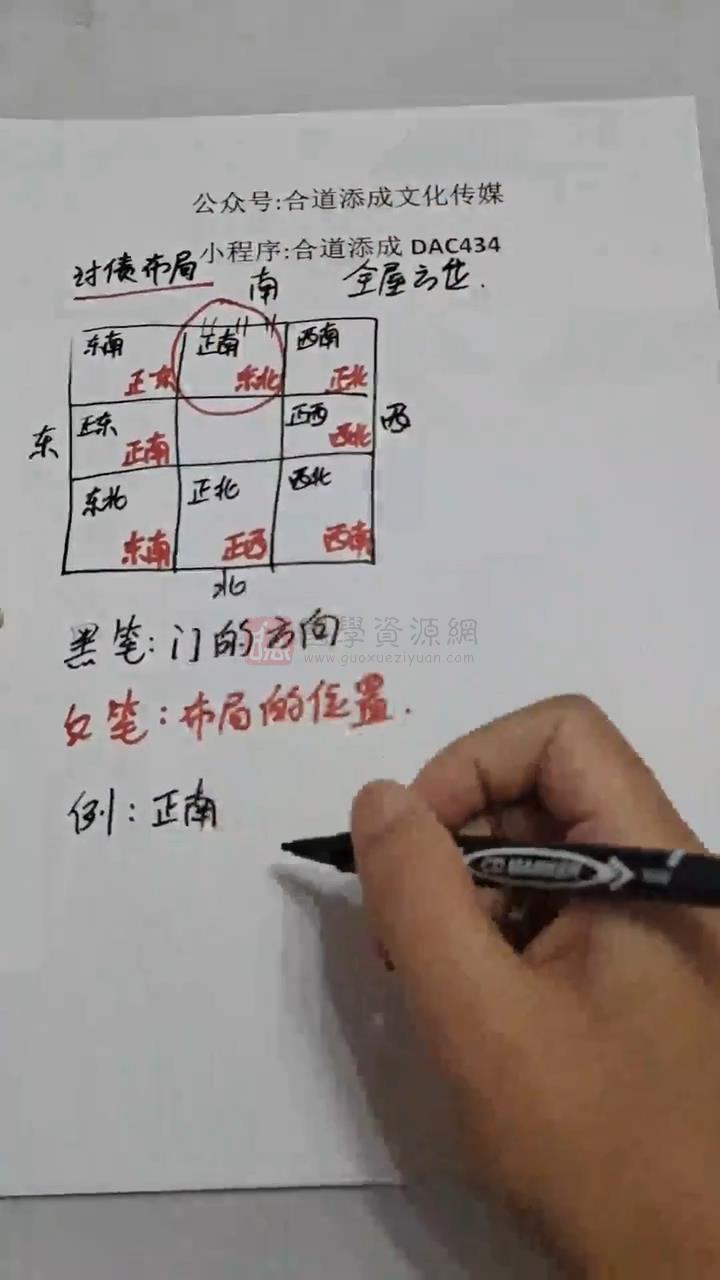 公众号:合道添成文化传媒
小程序:合道添成 DAC434
讨债布局
南
全屋方位.
东南 正东
正南 东北
西南 正北
东
正东 正南
正西 西北
西
东北 东南
正北 正西
西北 西南
北
黑笔:门的方向
國學資源網
www.guoxueziyuan.com
红笔:布局的位置.
例:正南
CD MARKER